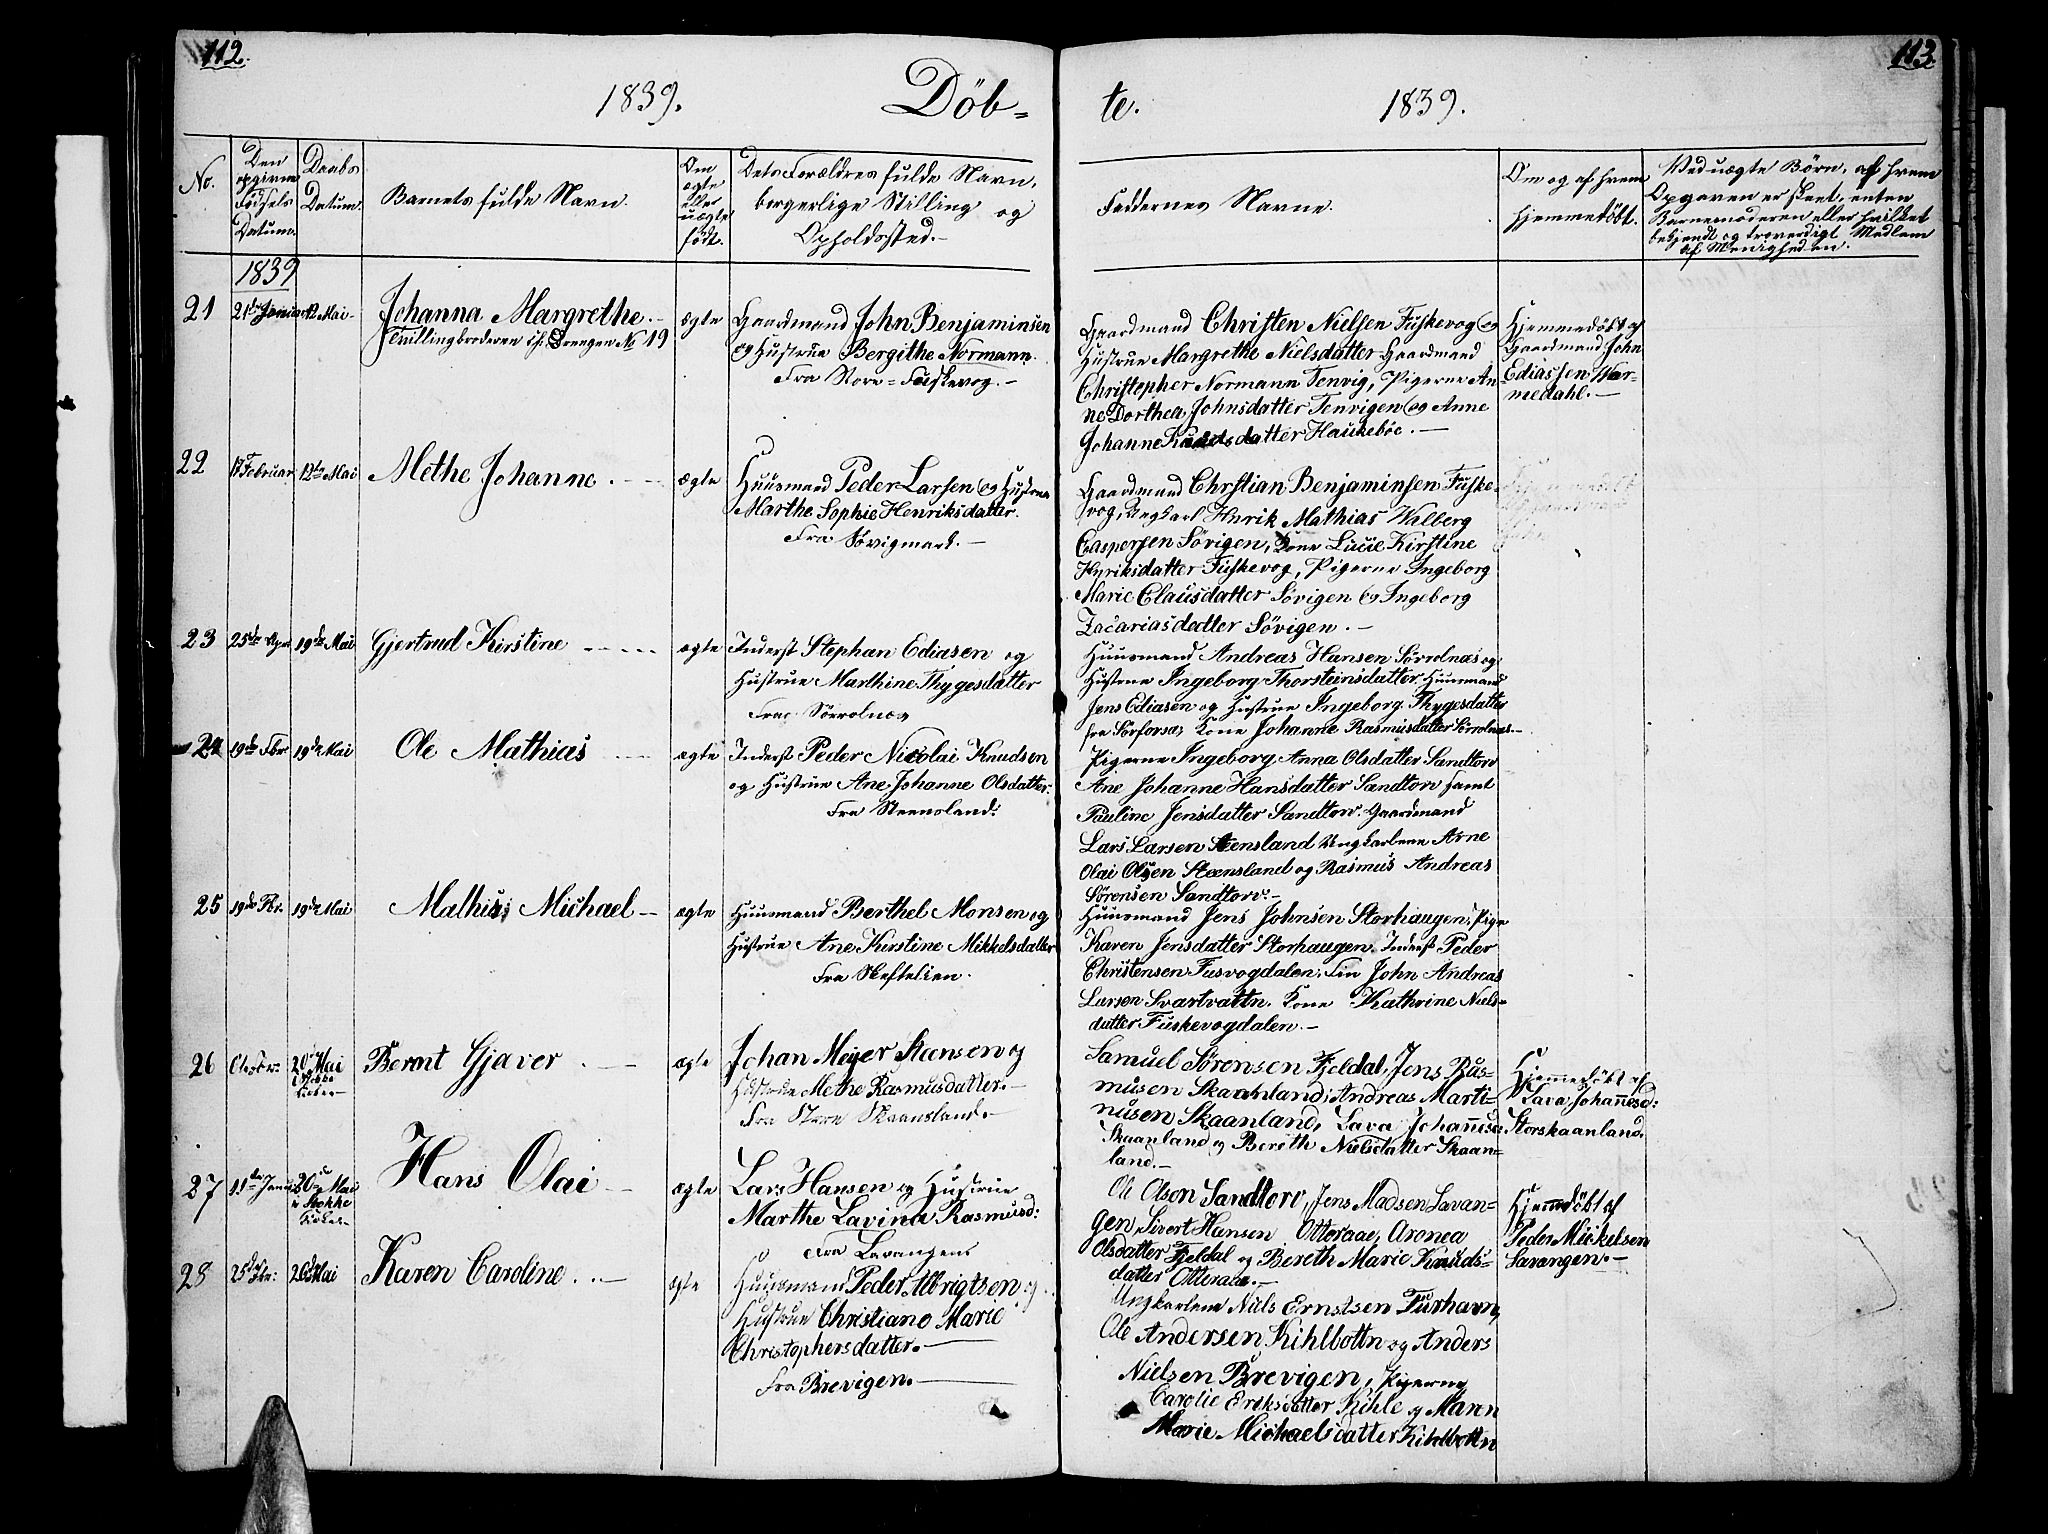 112.
113.
1839.
Döb-
te.
1839.
No.
Den opgivne Fødsels Datum.
Daabs Datum.
Barnets fulde Navn.
Om ægte eller uægte født.
Dets Forældres fulde Navn, borgerlige Stilling og Opholdssted.-
Faddernes Navne.
Om og af hvem hjemmedöbt.
Ved uægte Börn, af hvem Opgaven er skeet, enten Barnemoderen eller hvilket bekjendt og troværdigt Medlem af Menigheden.
1839
21
21de Januar
12 Mai-
Johanna Margrethe.-
Tvillingbroderen Drengen No 19
ægte
Gaardmand John Benjaminsen
og Hustrue Bergithe Normann.
Fra Store-Fuskevog.-
Gaardmand Christen Nielsen Fuskevog og
Hustrue Margrethe Nielsdatter Gaardmand
Christopher Normann Tenvig, Pigerne An-
ne Dorthea Johnsdatter Tenvigen og Anne
Johanne Knudsdatter Haukebøe.-
Hjemmedöbt af
Gaardmand John
Ediassen War-
medahl.-
22
Februar
12te Mai
Methe Johanne.-
ægte
Huusmand Peder Larsen og Hustrue
Marthe Sophie Henriksdatter.
Fra Sövigmark.-
Gaardmand Chrstian Benjaminsen Fuske-
vog, Ungkarl Hnrik Mathias Walberg
Caspersen Sövigen, Kone Lucie Kirstine
Hnriksdatter Fuskevog, Pigerne Ingeborg
Marie Clausdatter Sövigen og Ingeborg
Zacariasdatter Sövigen.-
23
25de Apr
19de Mai
Gjertrud Kirstine
ægte
Inderst Stephan Ediasen og
Hustrue Marthine Thygesdatter
Fra Sörrolnæs
Huusmand Andreas Hansen Sörrolnæs og
Hustrue Ingeborg Thorsteinsdatter. Huusmand
Jens Ediasen og Hustrue Ingeborg Thygesdatter
fra Sörforsa, Kone Johanne Rasmusdatter Sörrolnæs.-
24
19de Fbr.
19de Mai
Ole Mathias
ægte
Inderst Peder Nicolai Knudsen
og Hustrue Ane Johanne Olsdatter.
Fra Steensland.
Pigerne Ingeborg Anna Olsdatter Sandtorv
Ane Johanne Hansdatter Sandtorv samt
Pauline Jensdatter Sandtorv. Gaardmand
Lars Larsen Steensland Ungkarlene Arne
Olai Olsen Steensland og Rasmus Andreas
Sörensen Sandtorv.-
25
19de Fbr.
19de Mai
Mathis Michael -
ægte
Huusmand Berthel Monsen og
Hustrue Ane Kirstine Mikkelsdatter
Fra
Huusmand Jens Johnsen Storhaugen, Pige
Karen Jensdatter Storhaugen. Inderst Peder
Christensen Fusvogdalen. Fin John Andreas
Larsen Svartvattn. Kone Kathrine Niels-
datter Fuskevogdalen.-
26
20de Mai
i Stokke
Kirke-
Beront Gjæver.-
ægte
Johan Meyer Steensen og
Hustrue Methe Rasmusdatter.-
Fra Store Skaanland.-
Samuel Sörensen Fjeldal, Jens Ras-
musen Skaanland, Andreas Marti-
nusen Skaanland, Lava Johannesd:
Skaanland og Bereth Nielsdatter Skaan-
land.-
Hjemmedöbt af
Lava Johannesd:
Storskaanland.
27
11te Januar
20de Mai
i Stokke
Kirke-
Hans Olai -
ægte
Lars Hansen og Hustrue
Marthe Lavina Rasmusd:
Fra Lavangen
Ole Olson Sandtorv, Jens Madsen Lavan-
gen, Sivert Hansen Otteraae, Aronea
Olsdatter Fjeldal og Bereth Marie Knuds-
datter Otteraae.-
Hjemmedöbt af
Peder Mickelsen
Lavangen.-
28
25de Fbr:
26de Mai
Karen Caroline.-
ægte
Huusmand Peder Albrigtsen og
Hustrue Christiane Marie
Christophersdatter.-
Fra Brevigen.-
Ungkarlene Niels Ernstsen Furhavn,
Ole Andersen Kihlbottn og Anders
Nielsen Brevigen, Pigerne
Carolie Eriksdatter Kihle og Mann
Marie Michaelsdatter Kihlbottn